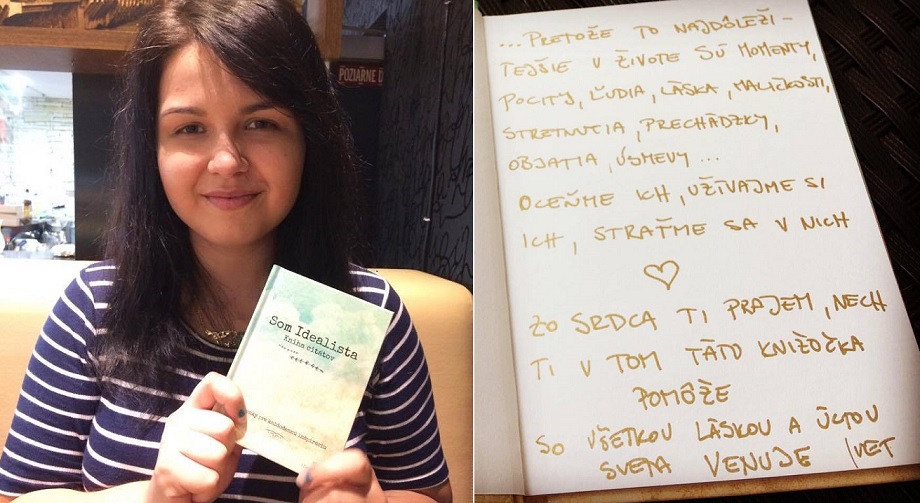 POŽIARNE D
Som Idealista
Kniha citátov
... PRETOŽE TO NAJDÔLEŽI-
TEJŠIE V ŽIVOTE SÚ MOMENTY,
POCITY, ĽUDIA, LÁSKA, MALIČKOSTI,
STRETNUTIA, PRECHÁDZKY,
OBJATIA, ÚSMEVY ...
OCEŇME ICH, UŽÍVAJME SI
ICH, STRAŤME SA V NICH
ZO SRDCA TI PRAJEM, NECH
TI V TOM TÁTO KNIŽOČKA
POMÔŽE
SO VŠETKOU LÁSKOU A ÚCTOU
SVETA VENUJE IVET